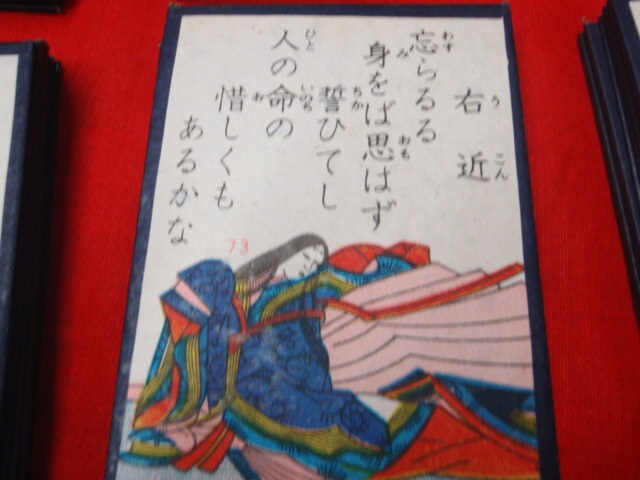 右近
忘らるる
身をば思はず
誓ひてし
人の命の
惜しくも
あるかな
73